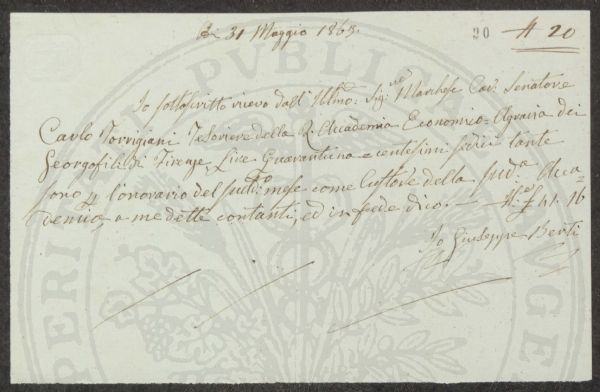 A dì 31 Maggio 1865. 20 # 20
Io sottoscritto ricevo dall' Illmo. Sigre. Marchese Cav. Senatore
Carlo Torrigiani Tesoriere della R. Accademia Economico-Agraria dei
Georgofili di Firenze, Lire Quarantuna e centesimi sedici tante
sono p l'onorario del sudto. mese come Custode della sudta. Acca-
demia, a me dette contanti, ed in fede dico. — 41. 16
Io Giuseppe Berti